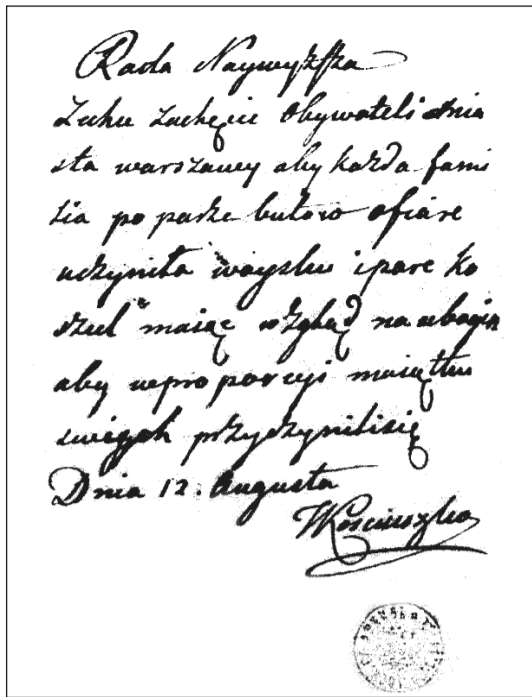 Rada Naywyżſza
Zechce Zachęcić Obywateli Mia
sta warszawy aby każda fami
lia po parze butow ofiare
uczyniła woysku i pare ko
szul maiąc wzgląd na ubogich
aby w proporcyi maiątku
swiego przyczynili się
Dnia 12. Augusta
TKosciuszko